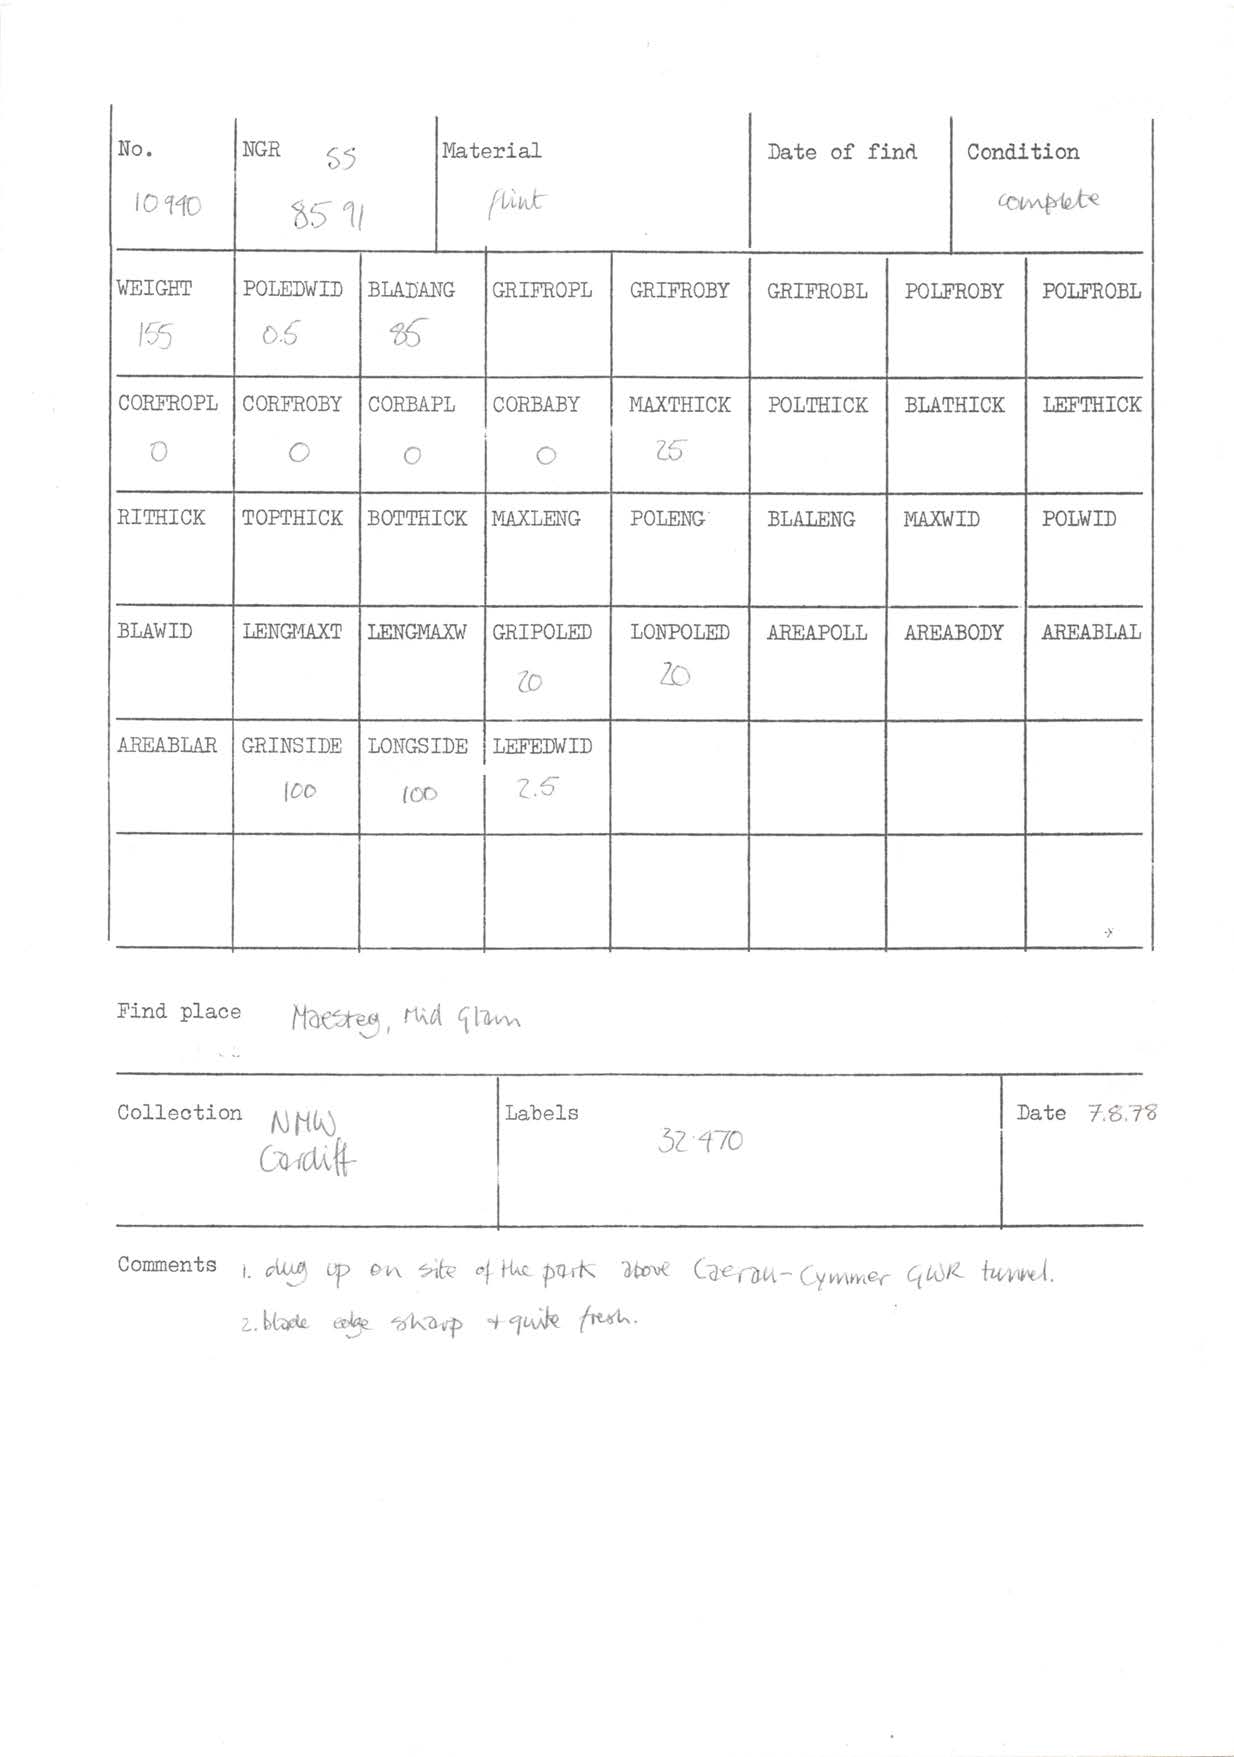 No. NGR SS Material Date of find Condition
10990 85 91 flint complete
WEIGHT POLEDWID BLADANG GRIFROPL GRIFROBY GRIFROBL POLFROBY POLFROBL
155 0.5 85
CORFROPL CORFROBY CORBAPL CORBABY MAXTHICK POLTHICK BLATHICK LEFTHICK
0 0 0 0 25
RITHICK TOPTHICK BOTTHICK MAXLENG POLENG BLALENG MAXWID POLWID
BLAWID LENGMAXT LENGMAXW GRIPOLED LONPOLED AREAPOLL AREABODY AREABLAL
20 20
AREABLAR GRINSIDE LONGSIDE LEFEDWID
100 100 2.5
Find place Maesteg, Mid Glam
Collection NMW Labels Date 7.8.78
Cardiff 32.470
Comments 1. dug up on site of the park above Caerau-Cymmer GWR tunnel.
2. blade edge sharp + quite fresh.